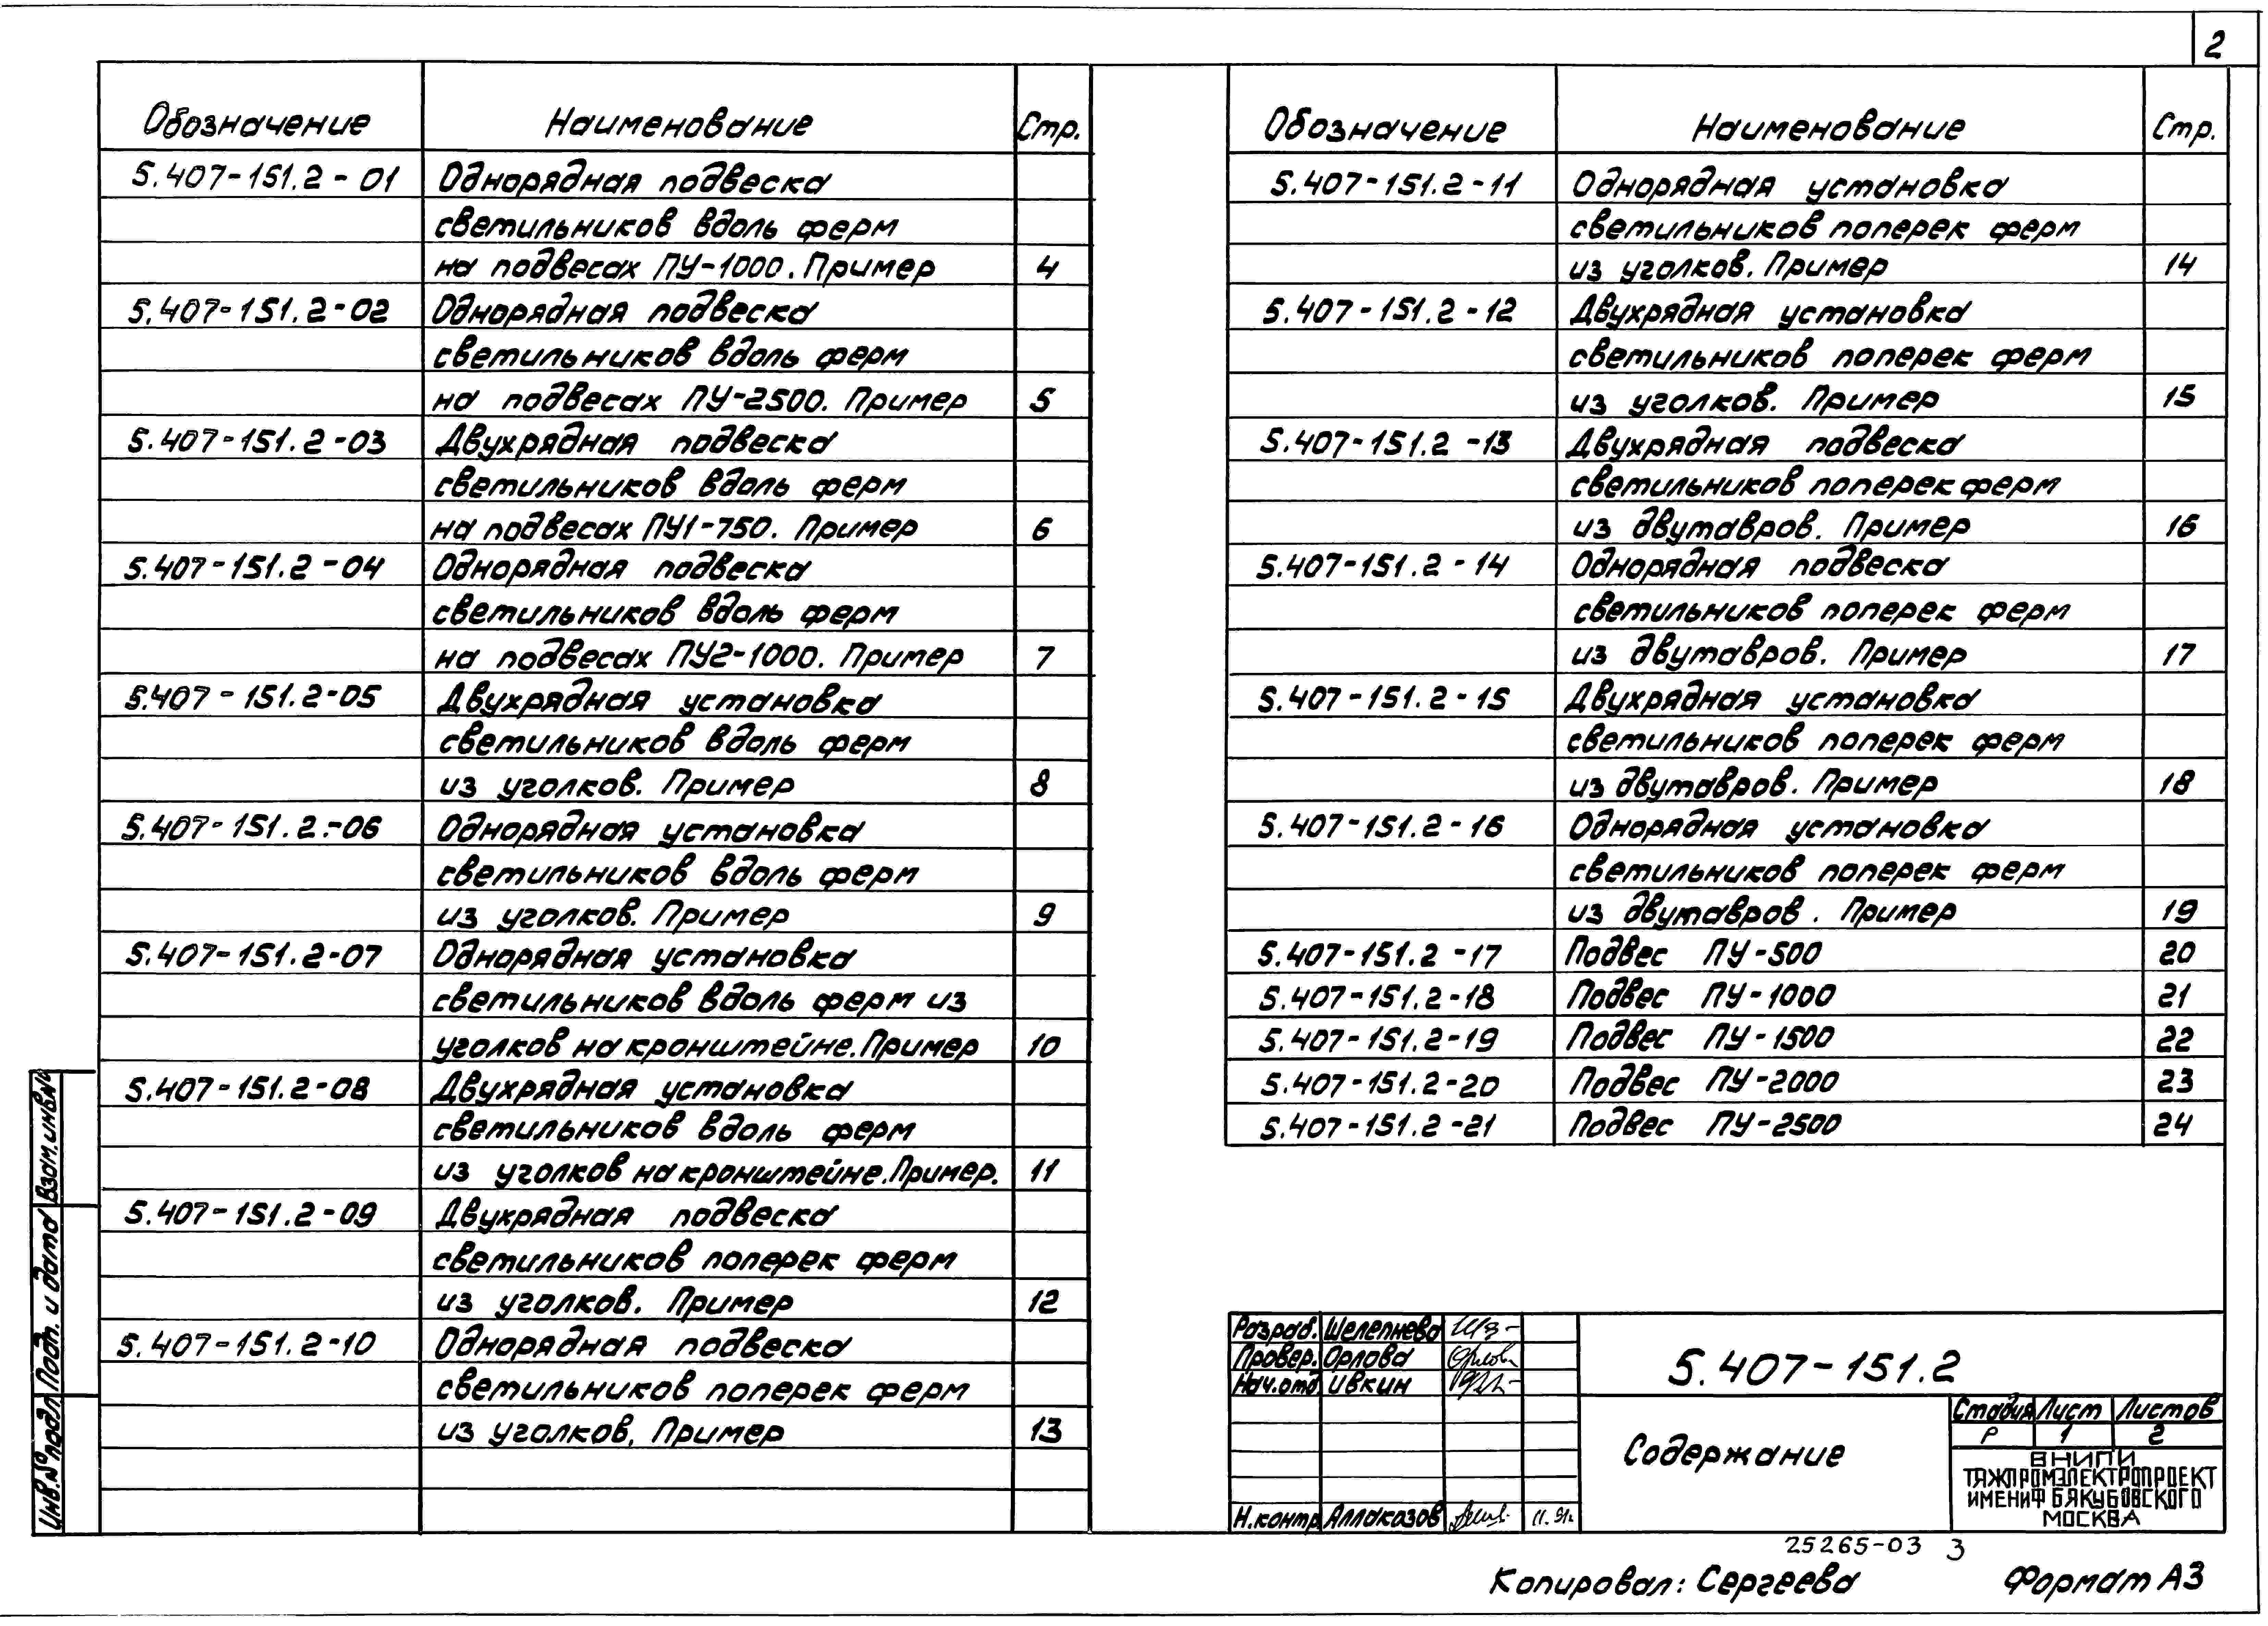 2
Обозначение Наименование Стр.
5.407-151.2-01 Однорядная подвеска
светильников вдоль ферм
на подвесах ПУ-1000. Пример 4
5.407-151.2-02 Однорядная подвеска
светильников вдоль ферм
на подвесах ПУ-2500. Пример 5
5.407-151.2-03 Двухрядная подвеска
светильников вдоль ферм
на подвесах ПУ1-750. Пример 6
5.407-151.2-04 Однорядная подвеска
светильников вдоль ферм
на подвесах ПУ2-1000. Пример 7
5.407-151.2-05 Двухрядная установка
светильников вдоль ферм
из уголков. Пример 8
5.407-151.2.-06 Однорядная установка
светильников вдоль ферм
из уголков. Пример 9
5.407-151.2-07 Однорядная установка
светильников вдоль ферм из
уголков на кронштейне. Пример 10
5.407-151.2-08 Двухрядная установка
светильников вдоль ферм
из уголков на кронштейне. Пример. 11
5.407-151.2-09 Двухрядная подвеска
светильников поперек ферм
из уголков. Пример 12
5.407-151.2-10 Однорядная подвеска
светильников поперек ферм
из уголков, Пример 13
Обозначение Наименование Стр.
5.407-151.2-11 Однорядная установка
светильников поперек ферм
из уголков. Пример 14
5.407-151.2-12 Двухрядная установка
светильников поперек ферм
из уголков. Пример 15
5.407-151.2-13 Двухрядная подвеска
светильников поперек ферм
из двутавров. Пример 16
5.407-151.2-14 Однорядная подвеска
светильников поперек ферм
из двутавров. Пример 17
5.407-151.2-15 Двухрядная установка
светильников поперек ферм
из двутавров. Пример 18
5.407-151.2-16 Однорядная установка
светильников поперек ферм
из двутавров. Пример 19
5.407-151.2-17 Подвес ПУ-500 20
5.407-151.2-18 Подвес ПУ-1000 21
5.407-151.2-19 Подвес ПУ-1500 22
5.407-151.2-20 Подвес ПУ-2000 23
5.407-151.2-21 Подвес ПУ-2500 24
Взам.инв№
Подп. и дата
Инв.№подл
Разраб. Шелепнева
Провер. Орлова
Нач.отд Ивкин
Н.контр Аллаказов 11.91г.
5.407-151.2
Содержание
Стадия Лист Листов
Р 1 2
ВНИПИ
ТЯЖПРОМЭЛЕКТРОПРОЕКТ
ИМЕНИ Ф Б ЯКУБОВСКОГО
МОСКВА
25265-03 3
Копировал: Сергеева Формат А3